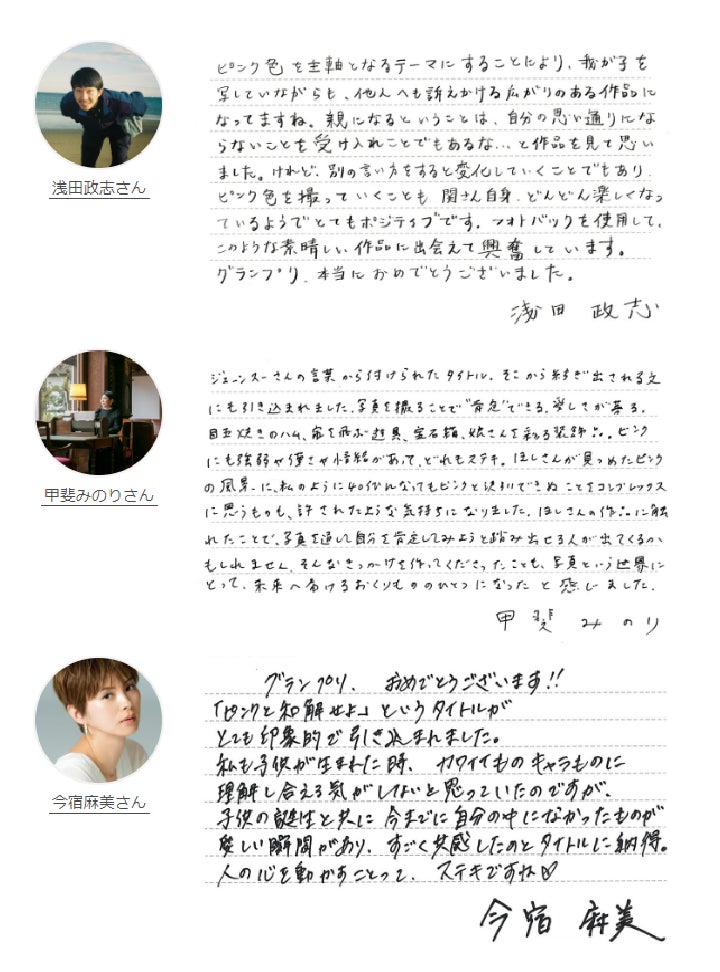 浅田政志さん
ピンク色を主軸となるテーマにすることにより、我が子を
写していながらも、他人へも訴えかける広がりのある作品に
なってますね。親になるということは、自分の思い通りにな
らないことを受け入れことでもあるな…と作品を見て思い
ました。けれど、別の言い方をすると変化していくことでもあり、
ピンク色を撮っていくことも関さん自身、どんどん楽しくなっ
ているようでとてもポジティブです。フォトバックを使用して、
このような素晴しい作品に出会えて興奮しています。
グランプリ、本当におめでとうございました。
浅田 政志
甲斐みのりさん
ジェーンスーさんの言葉から付けられたタイトル。そこから紡ぎ出される文
にも引き込まれました。写真を撮ることで"肯定"できる。愛しさが募る。
目玉焼きのハム、宙を飛ぶ遊具、宝石箱、娘さんを彩る装飾品。ピンク
にも強弱や優さや情緒があって、どれもステキ。ほしさんが見つめたピンク
の風景に、私のように40代になってもピンクと決別できぬことをコンプレックス
に思うものも、許されたような気持ちになりました。ほしさんの作品に触
れたことで、写真を通して自分を肯定してみようと踏み出せる人が出てくるか
もしれません。そんなきっかけを作ってくださったことも、写真という世界に
とって、未来へ届けるおくりもののひとつになったと感じました。
甲斐 みのり
今宿麻美さん
グランプリ、おめでとうございます!!
「ピンクと和解せよ」というタイトルが
とても印象的で引き込まれました。
私も子供が生まれた時、カワイイものキャラものに
理解し合える気がしないと思っていたのですが、
子供の誕生と共に今までに自分の中になかったものが
愛しい瞬間があり、すごく共感したのとタイトルに納得。
人の心を動かすことって、ステキですね♡
今宿 麻美